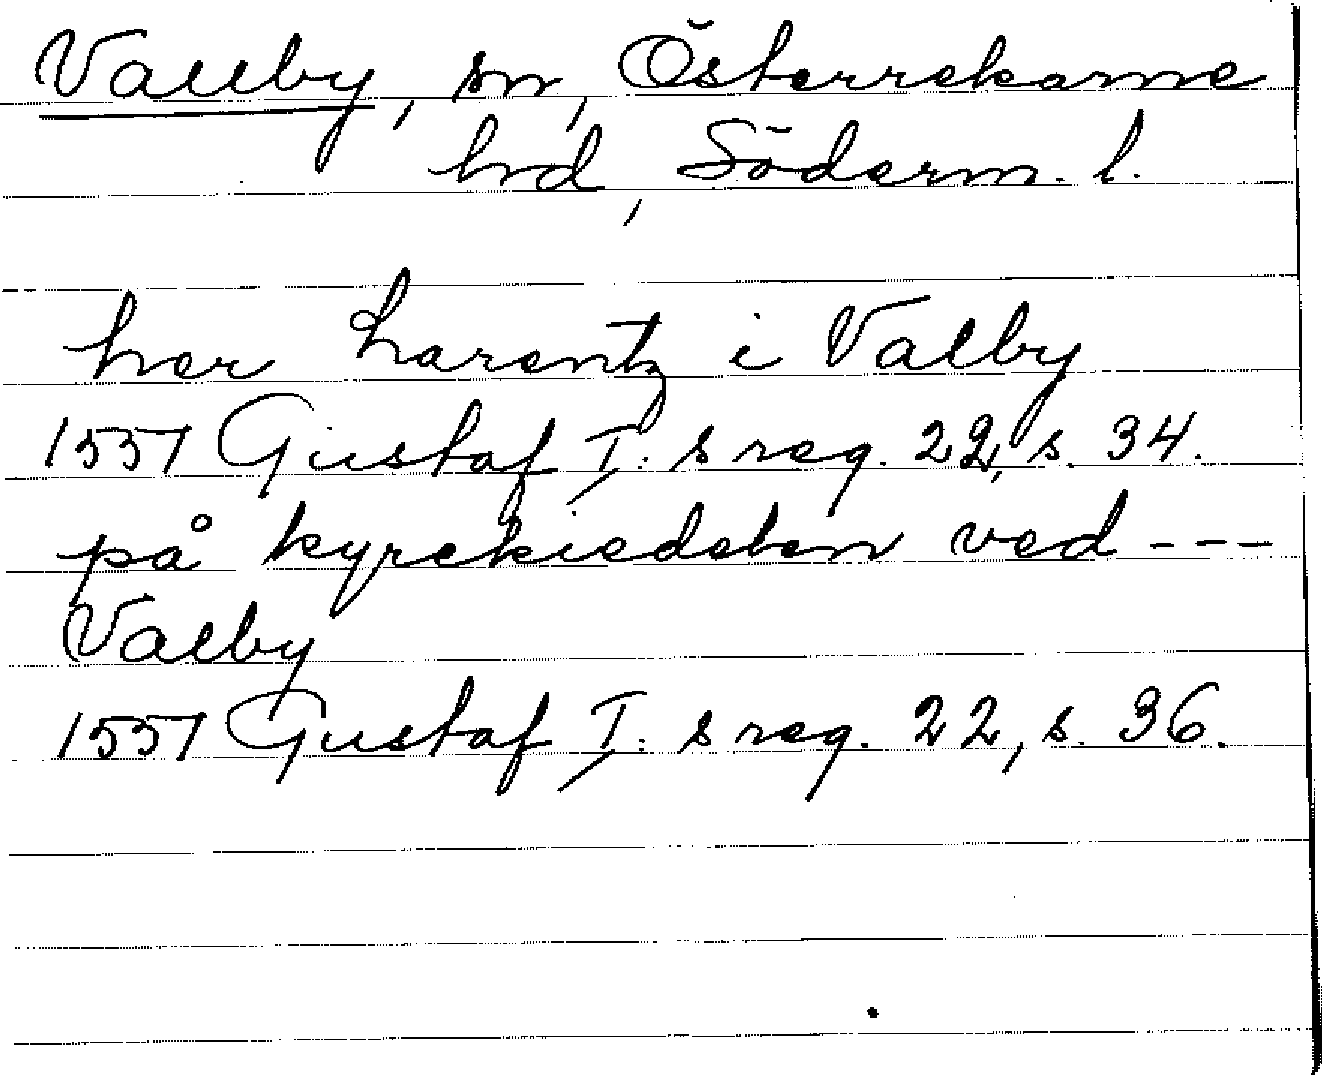 Vallby, sn, Österrekarne
hrd, Söderm. l.
her Larentz i Valby
1551 Gustaf I:s reg. 22, s. 34.
på kyrckiedelen ved ---
Valby
1551 Gustaf I:s reg. 22, s. 36.